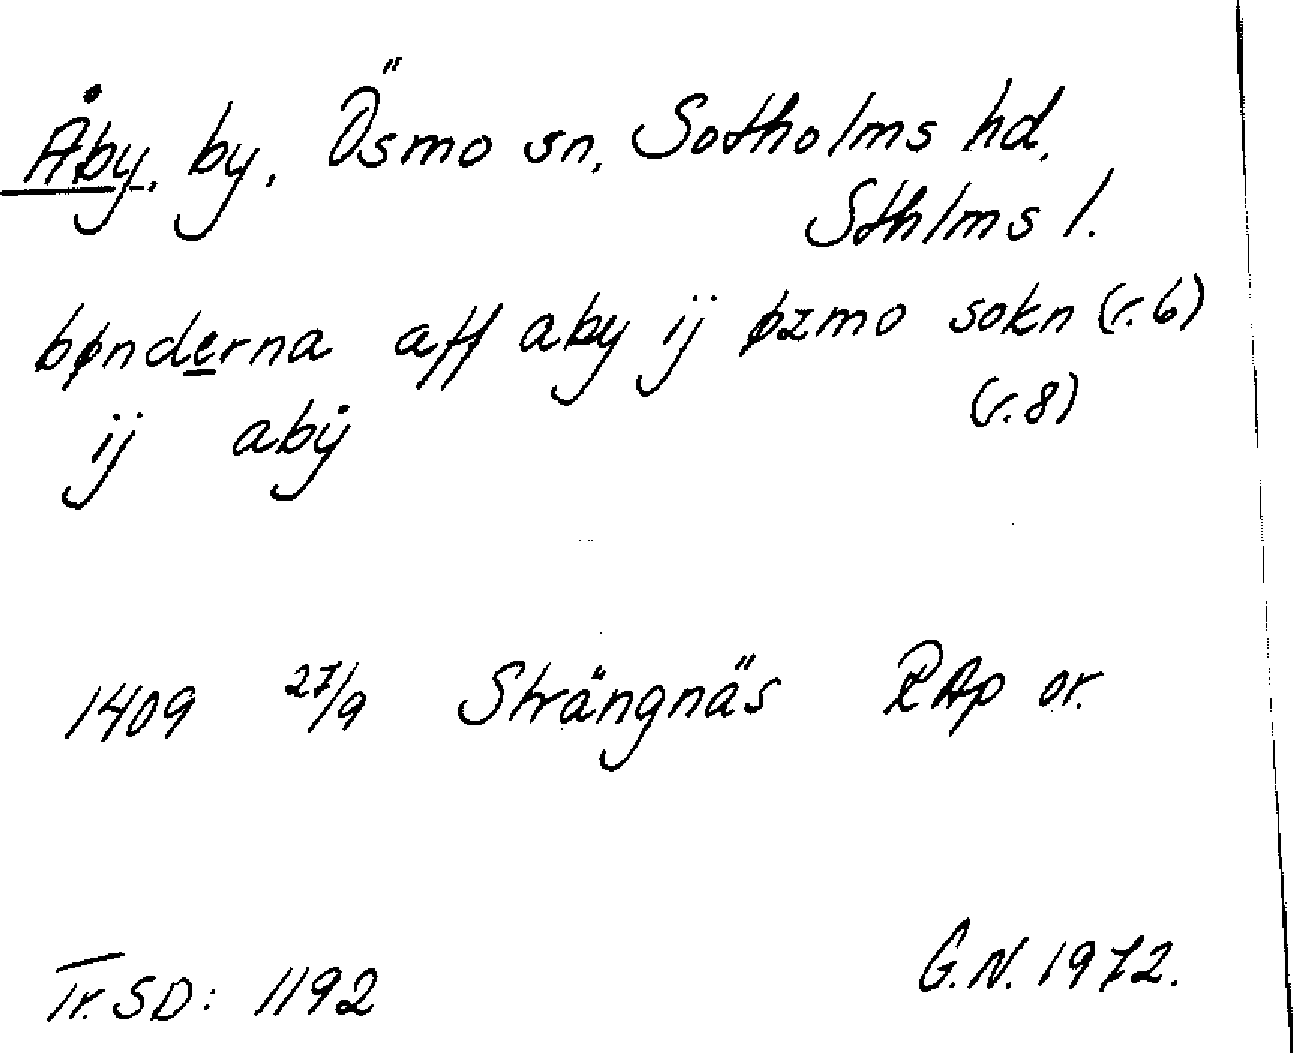 Åby, by, Ösmo sn, Sotholms hd,
Sthlms l.
bønderna aff aby ij øzmo sokn (r. 6)
ij abẏ (r. 8)
1409 27/9 Strängnäs RAp or.
Tr. SD: 1192 G.N. 1972.